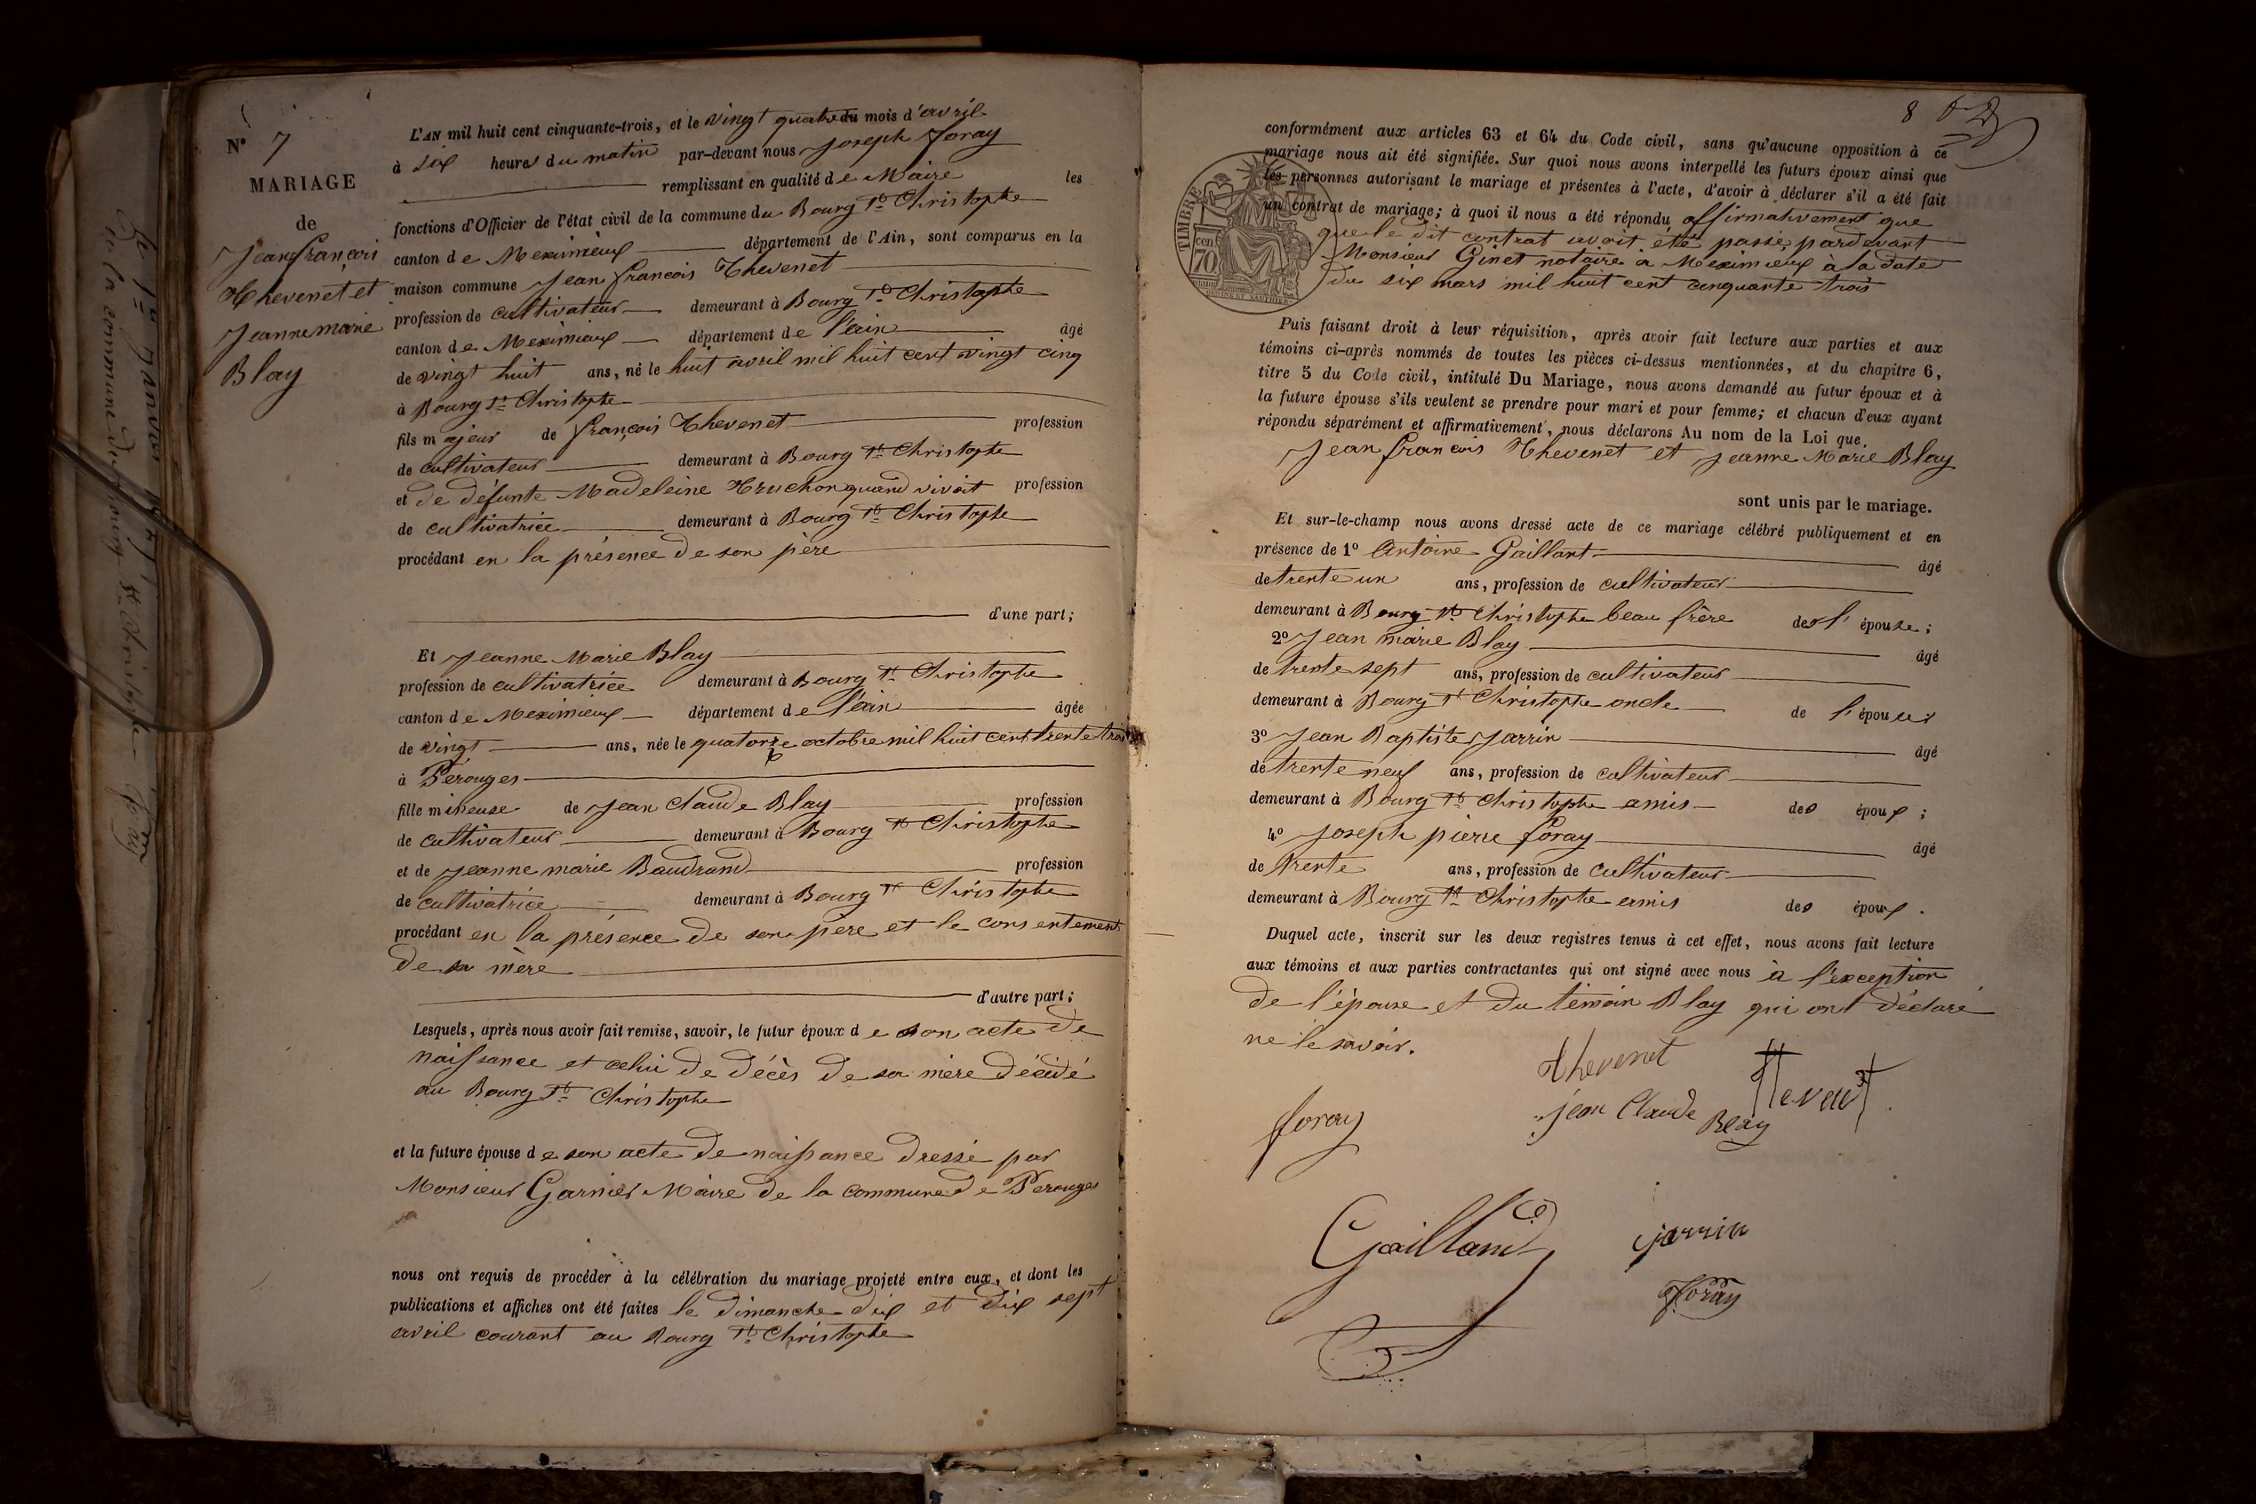 N° 7
MARIAGE
de
Jean françois
Thevenet et
Jeanne marie
Blay
L'AN mil huit cent cinquante-trois, et le vingt quatre du mois d'avril
à six heures du matin par-devant nous Joseph foray
remplissant en qualité de Maire les
fonctions d'Officier de l'état civil de la commune du Bourg St Christophe
canton de Meximieux département de l'Ain, sont comparus en la
maison commune Jean françois Thevenet
profession de cultivateur demeurant à Bourg St Christophe
canton de Meximieux département de l'ain âgé
de vingt huit ans, né le huit avril mil huit cent vingt cinq
à Bourg St Christophe
fils majeur de françois Thevenet profession
de cultivateur demeurant à Bourg St Christophe
et de défunte Madeleine Truchon quand vivait profession
de cultivatrice demeurant à Bourg St Christophe
procédant en la présence de son père
d'une part;
Et Jeanne Marie Blay
profession de cultivatrice demeurant à Bourg St Christophe
canton de Meximieux département de l'ain âgée
de vingt ans, née le quatorze octobre mil huit cent trente trois
à Pérouges
fille mineuse de Jean Claude Blay profession
de cultivateur demeurant à Bourg St Christophe
et de Jeanne marie Baudrand profession
de cultivatrice demeurant à Bourg St Christophe
procédant en la présence de son père et le consentement
de sa mère
d'autre part;
Lesquels, après nous avoir fait remise, savoir, le futur époux de son acte de
naissance et celui de décès de sa mère décédé
au Bourg St Christophe
et la future épouse de son acte de naissance dressé par
Monsieur Garnier Maire de la commune de Perouges
nous ont requis de procéder à la célébration du mariage projeté entre eux, et dont les
publications et affiches ont été faites le dimanche dix et dix sept
avril courant au Bourg St Christophe
8
conformément aux articles 63 et 64 du Code civil, sans qu'aucune opposition à ce
mariage nous ait été signifiée. Sur quoi nous avons interpellé les futurs époux ainsi que
les personnes autorisant le mariage et présentes à l'acte, d'avoir à déclarer s'il a été fait
un contrat de mariage; à quoi il nous a été répondu affirmativement que
que le dit contrat avait été passé pardevant
Monsieur Ginet notaire à Meximieux à la date
du six mars mil huit cent cinquante trois
TIMBRE
cen
70
Puis faisant droit à leur réquisition, après avoir fait lecture aux parties et aux
témoins ci-après nommés de toutes les pièces ci-dessus mentionnées, et du chapitre 6,
titre 5 du Code civil, intitulé Du Mariage, nous avons demandé au futur époux et à
la future épouse s'ils veulent se prendre pour mari et pour femme; et chacun d'eux ayant
répondu séparément et affirmativement, nous déclarons Au nom de la Loi que
Jean françois Thevenet et Jeanne Marie Blay
sont unis par le mariage.
Et sur-le-champ nous avons dressé acte de ce mariage célébré publiquement et en
présence de 1° Antoine Gaillant âgé
de trente un ans, profession de cultivateur
demeurant à Bourg St Christophe beau frère de l'épouse;
2° Jean marie Blay âgé
de trente sept ans, profession de cultivateur
demeurant à Bourg St Christophe oncle de l'épouse
3° Jean Baptiste Jarrin âgé
de trente neuf ans, profession de cultivateur
demeurant à Bourg St Christophe amis des époux;
4° Joseph pierre foray âgé
de trente ans, profession de cultivateur
demeurant à Bourg St Christophe amis des époux.
Duquel acte, inscrit sur les deux registres tenus à cet effet, nous avons fait lecture
aux témoins et aux parties contractantes qui ont signé avec nous à l'exception
de l'épouse et du témoin Blay qui ont déclaré
ne le savoir.
Thevenet
foray
jean Claude Blay
Gailland
jarrin
Foray